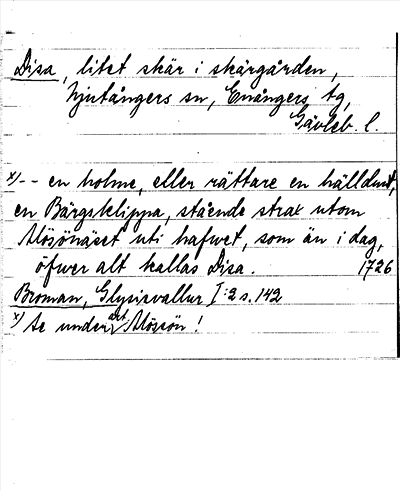 Disa, litet skär i skärgården,
Njutångers sn, Enångers tg,
Gävleb. l.
x) -- en holme, eller rättare en hälldunt,
en Bärgsklippa, stående strax utom
Mössönäset uti hafwet, som än i dag,
öfwer alt kallas Disa. 1726
Broman, Glysisvallur I:2 s. 142
x) Se under art. Mössön!